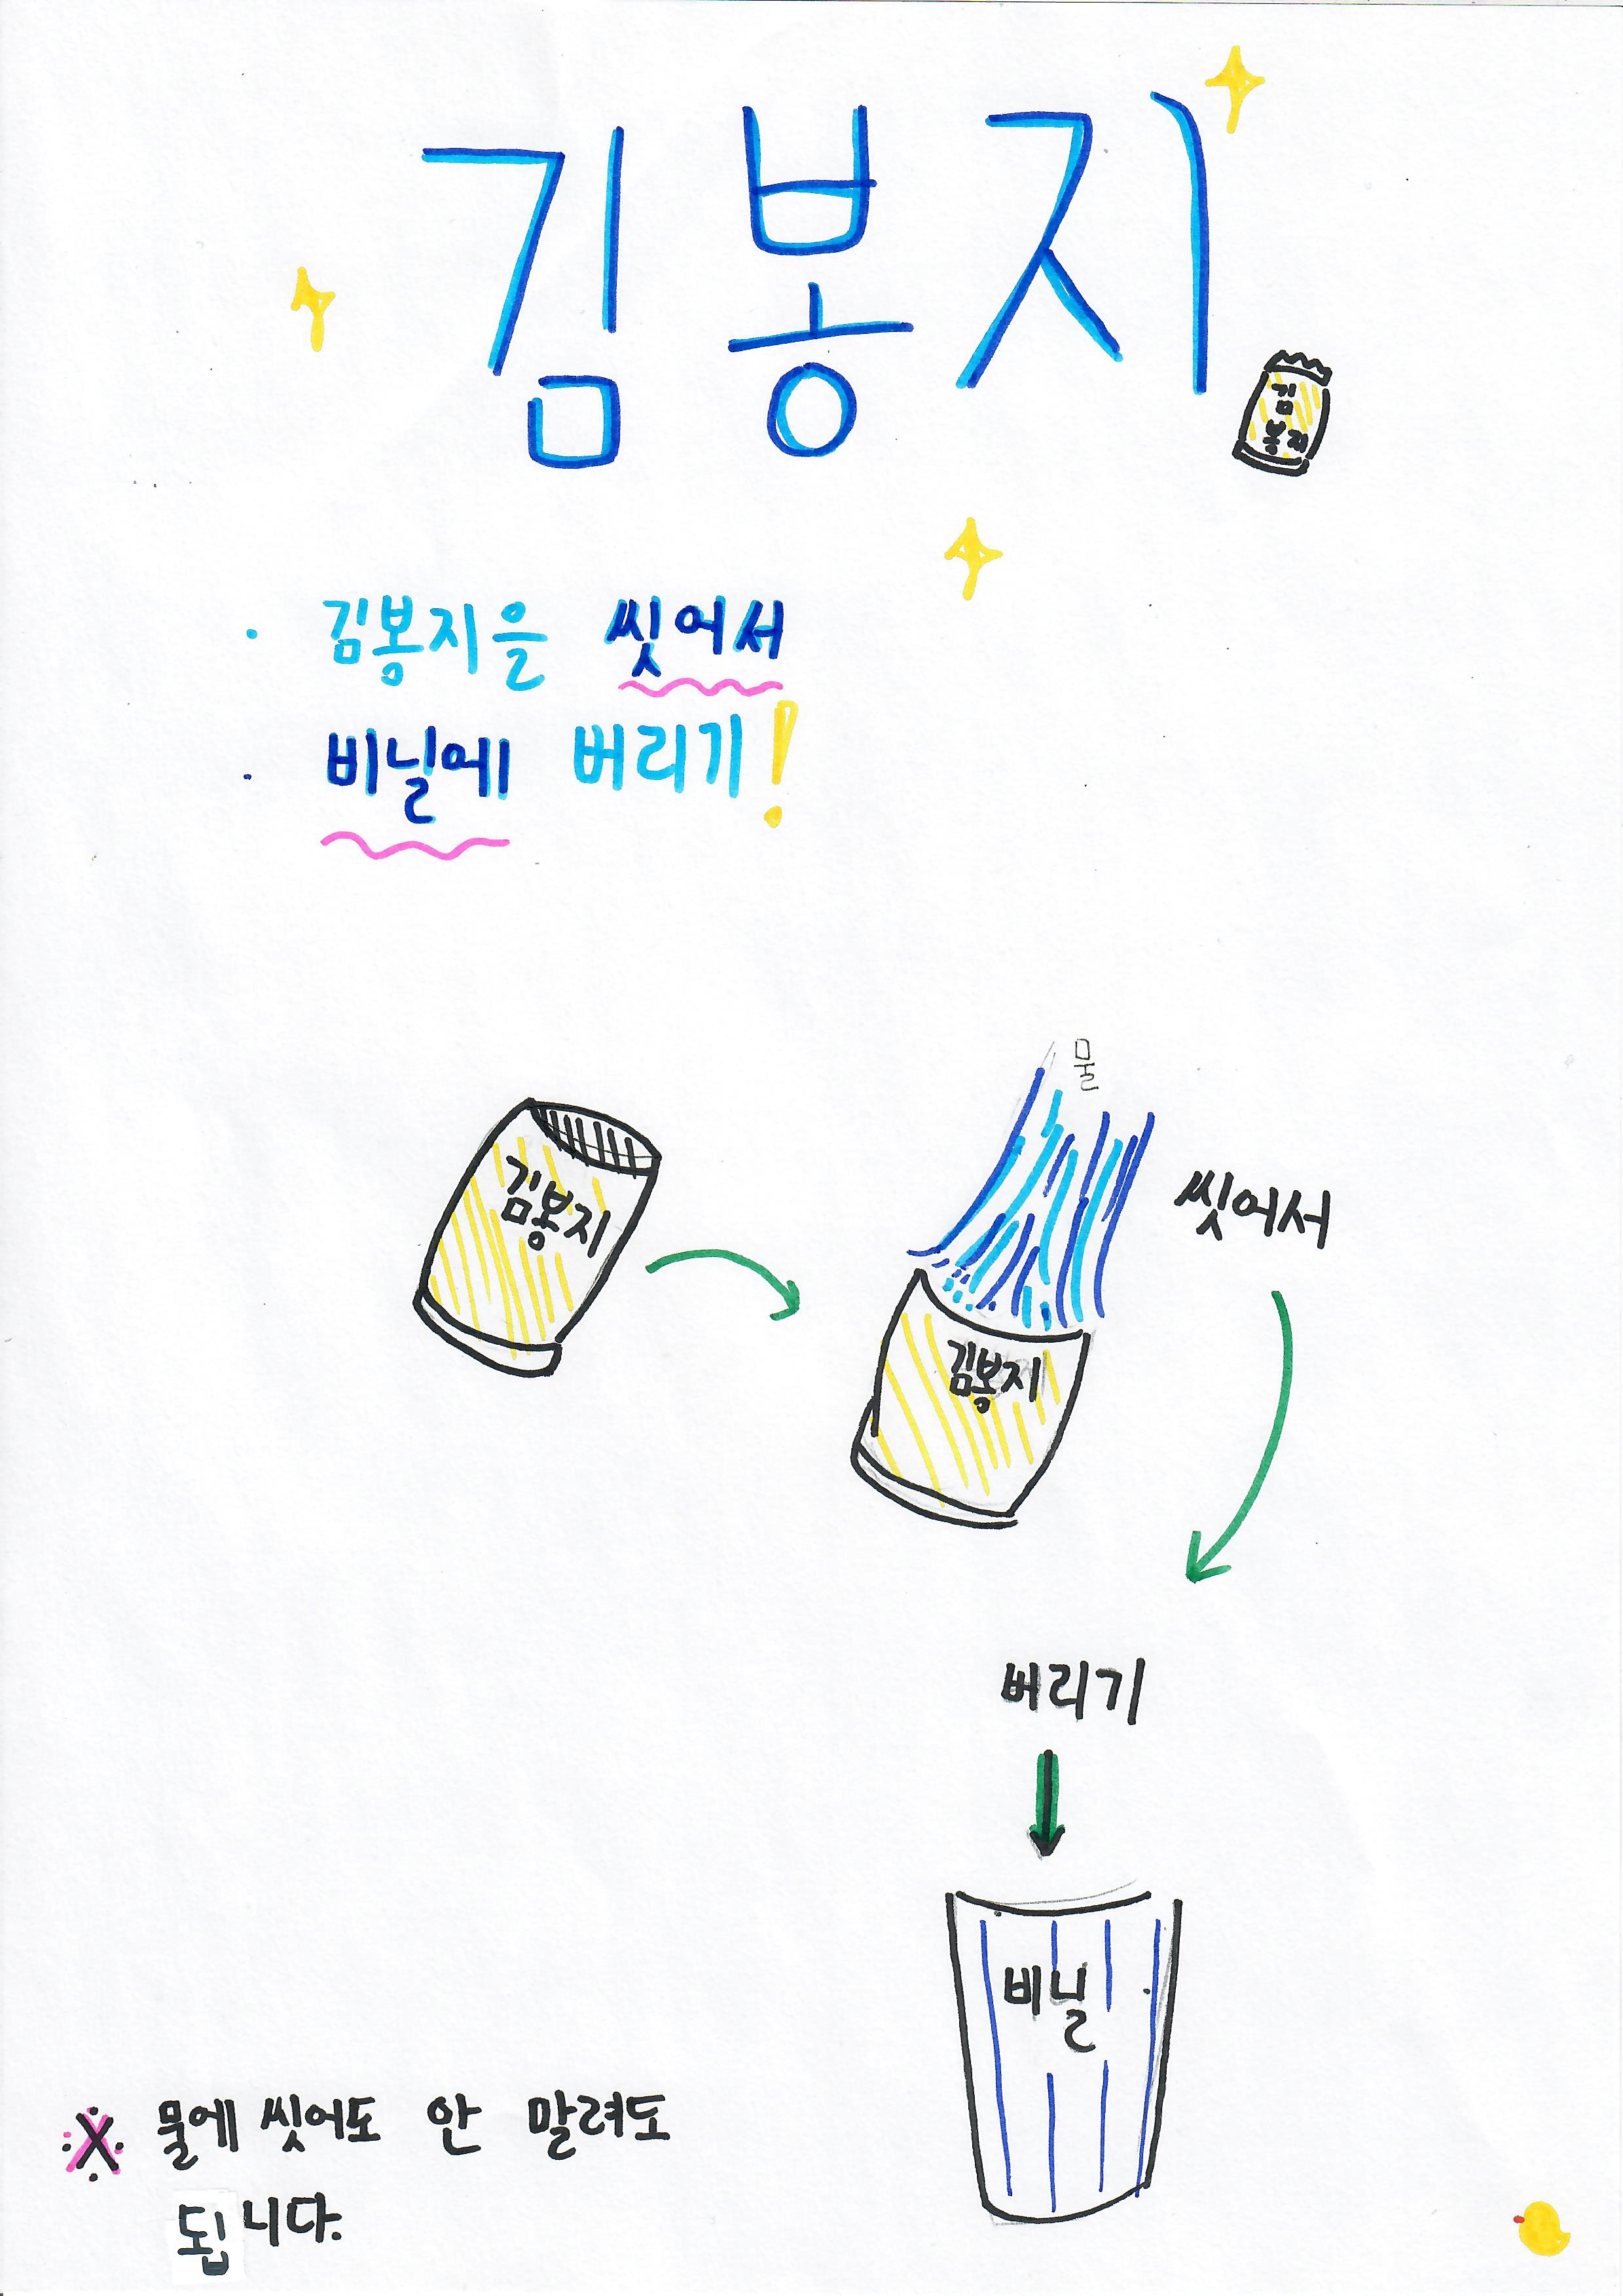 김봉지
김
봉지
· 김봉지을 씻어서
· 비닐에 버리기!
물
김봉지
씻어서
김봉지
버리기
비닐
※ 물에 씻어도 안 말려도
됩니다.